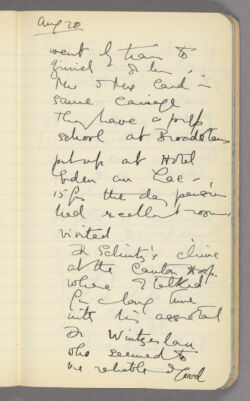 Aug 20
went by train to
Zurich
Mr & Mrs Card -
same carriage
They have a prep
school at Broadstairs
put up at Hotel
Eden au Lac -
15 fr the day pension
had excellent room
visited
Dr Schintz's clinic
at the Canton Hosp.
where I talked
for a long time
with his assistant
Dr
who seemed to
be reliable & good